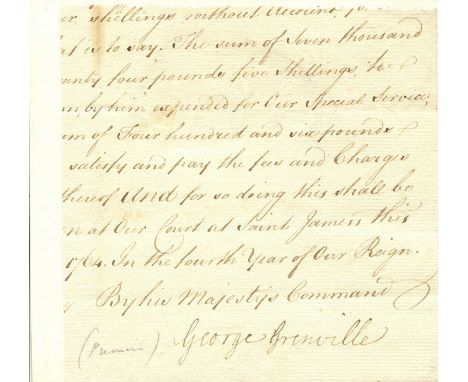 ur shillings without Account,
at is to say. The sum of Seven thousand
enty four pounds five Shillings, to
m, by him expended for Our Special Service,
um of Four hundred and six pounds
satisfy and pay the fees and Charges
thereof And for so doing this shall be
n at Our Court at Saint James's this
1764. In the fourth Year of Our Reign.
By his Majesty's Command
(Premier) George Grenville